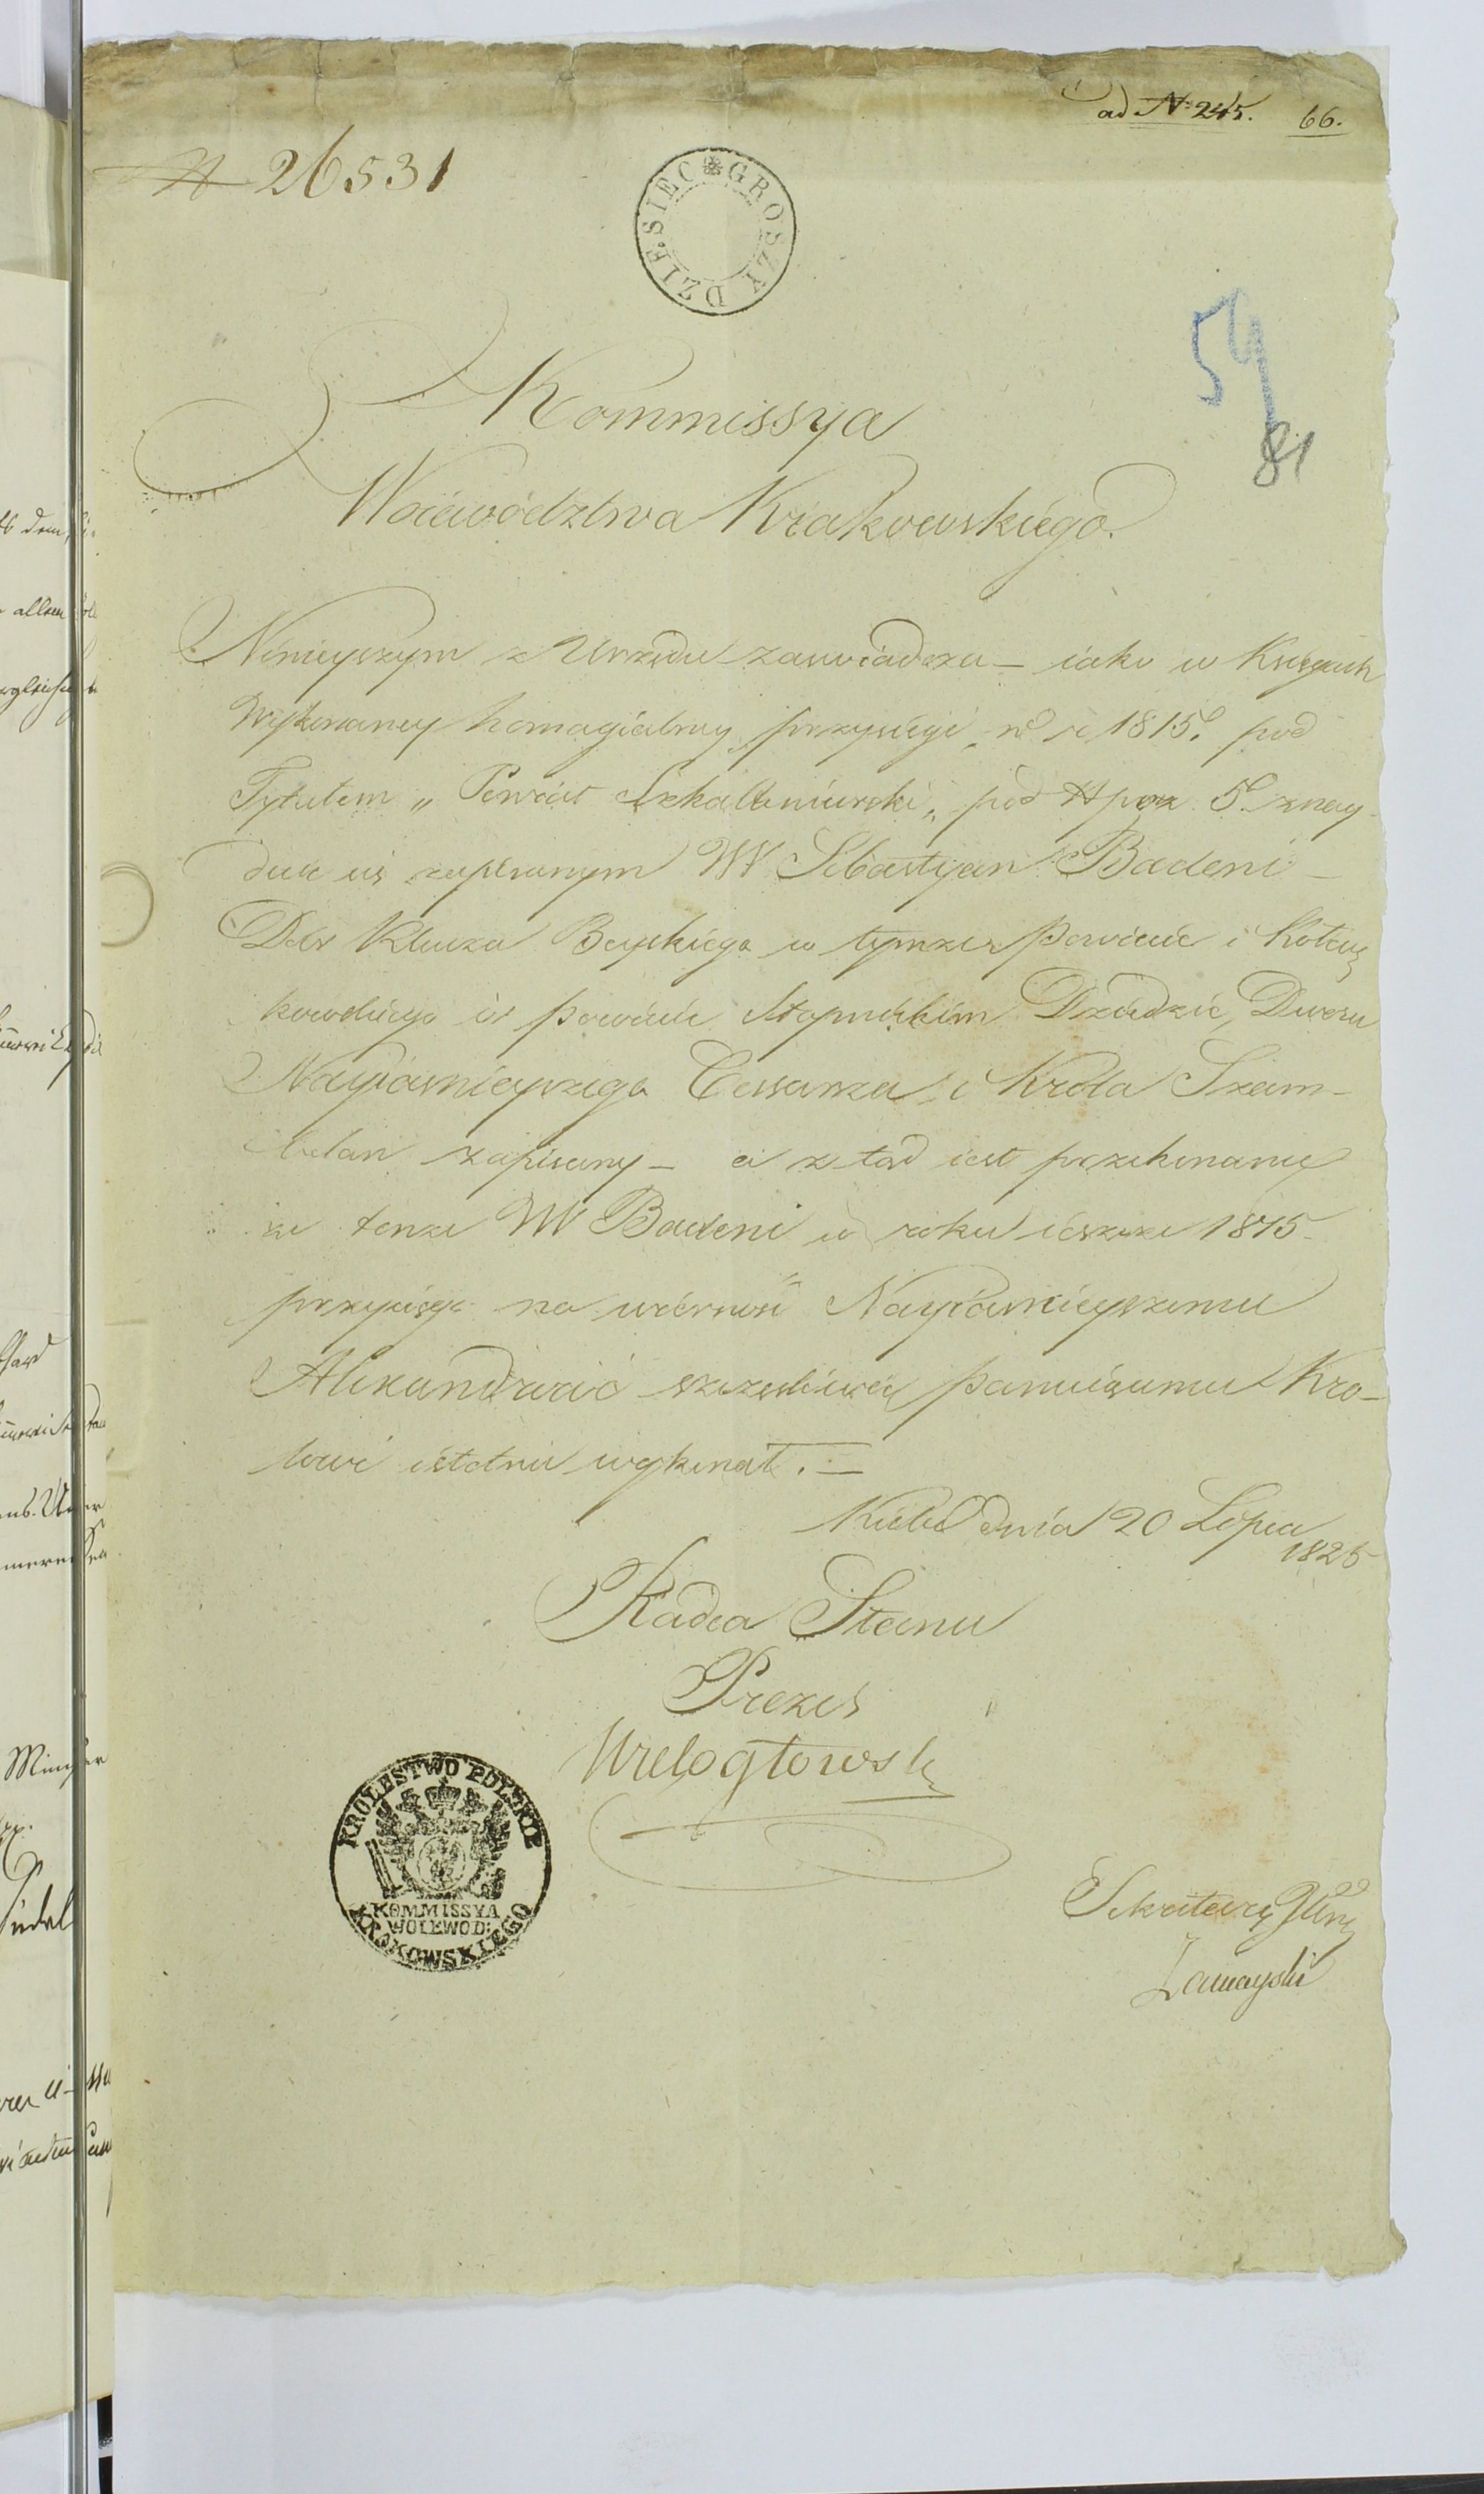 ad N. 245. 66.
N 26531
DZIESIEC GROSZY
54
81
Kommissya
Woiewództwa Krakowskiego.
Ninieyszym z Urzędu zaswiadcza – iako w Księgach
Wykonaney homagialney przysięgi w r. 1815. pod
Tytułem „ Powiat Szkalbmierski „ pod N por 5. znay
duie się zapisanym W Sebastyan Badeni –
Dóbr Klucza Beyskiego w tymże Powiecie i Koteuz
kowskiego w powiecie Stopnickim Dziedzic, Dworu
Nayiasnieyszego Cesarza i Króla Szam-
belan zapisany – a z tąd iest przekonanie
że tenże W Badeni w roku ieszcze 1815
przysięgę na wierność Nayiasnieyszemu
Alexandrowi szczęśliwie panuiącemu Kró-
lowi istotnie wykonał. –
Kielce dnia 20 Lipca
1825
Radca Stanu
Prezes
Wielogłowski
KROLESTWO POLSKIE
KOMMISSYA
WOIEWOD:
KRAKOWSKIEGO
Sekretarz Jlny
Zamoyski